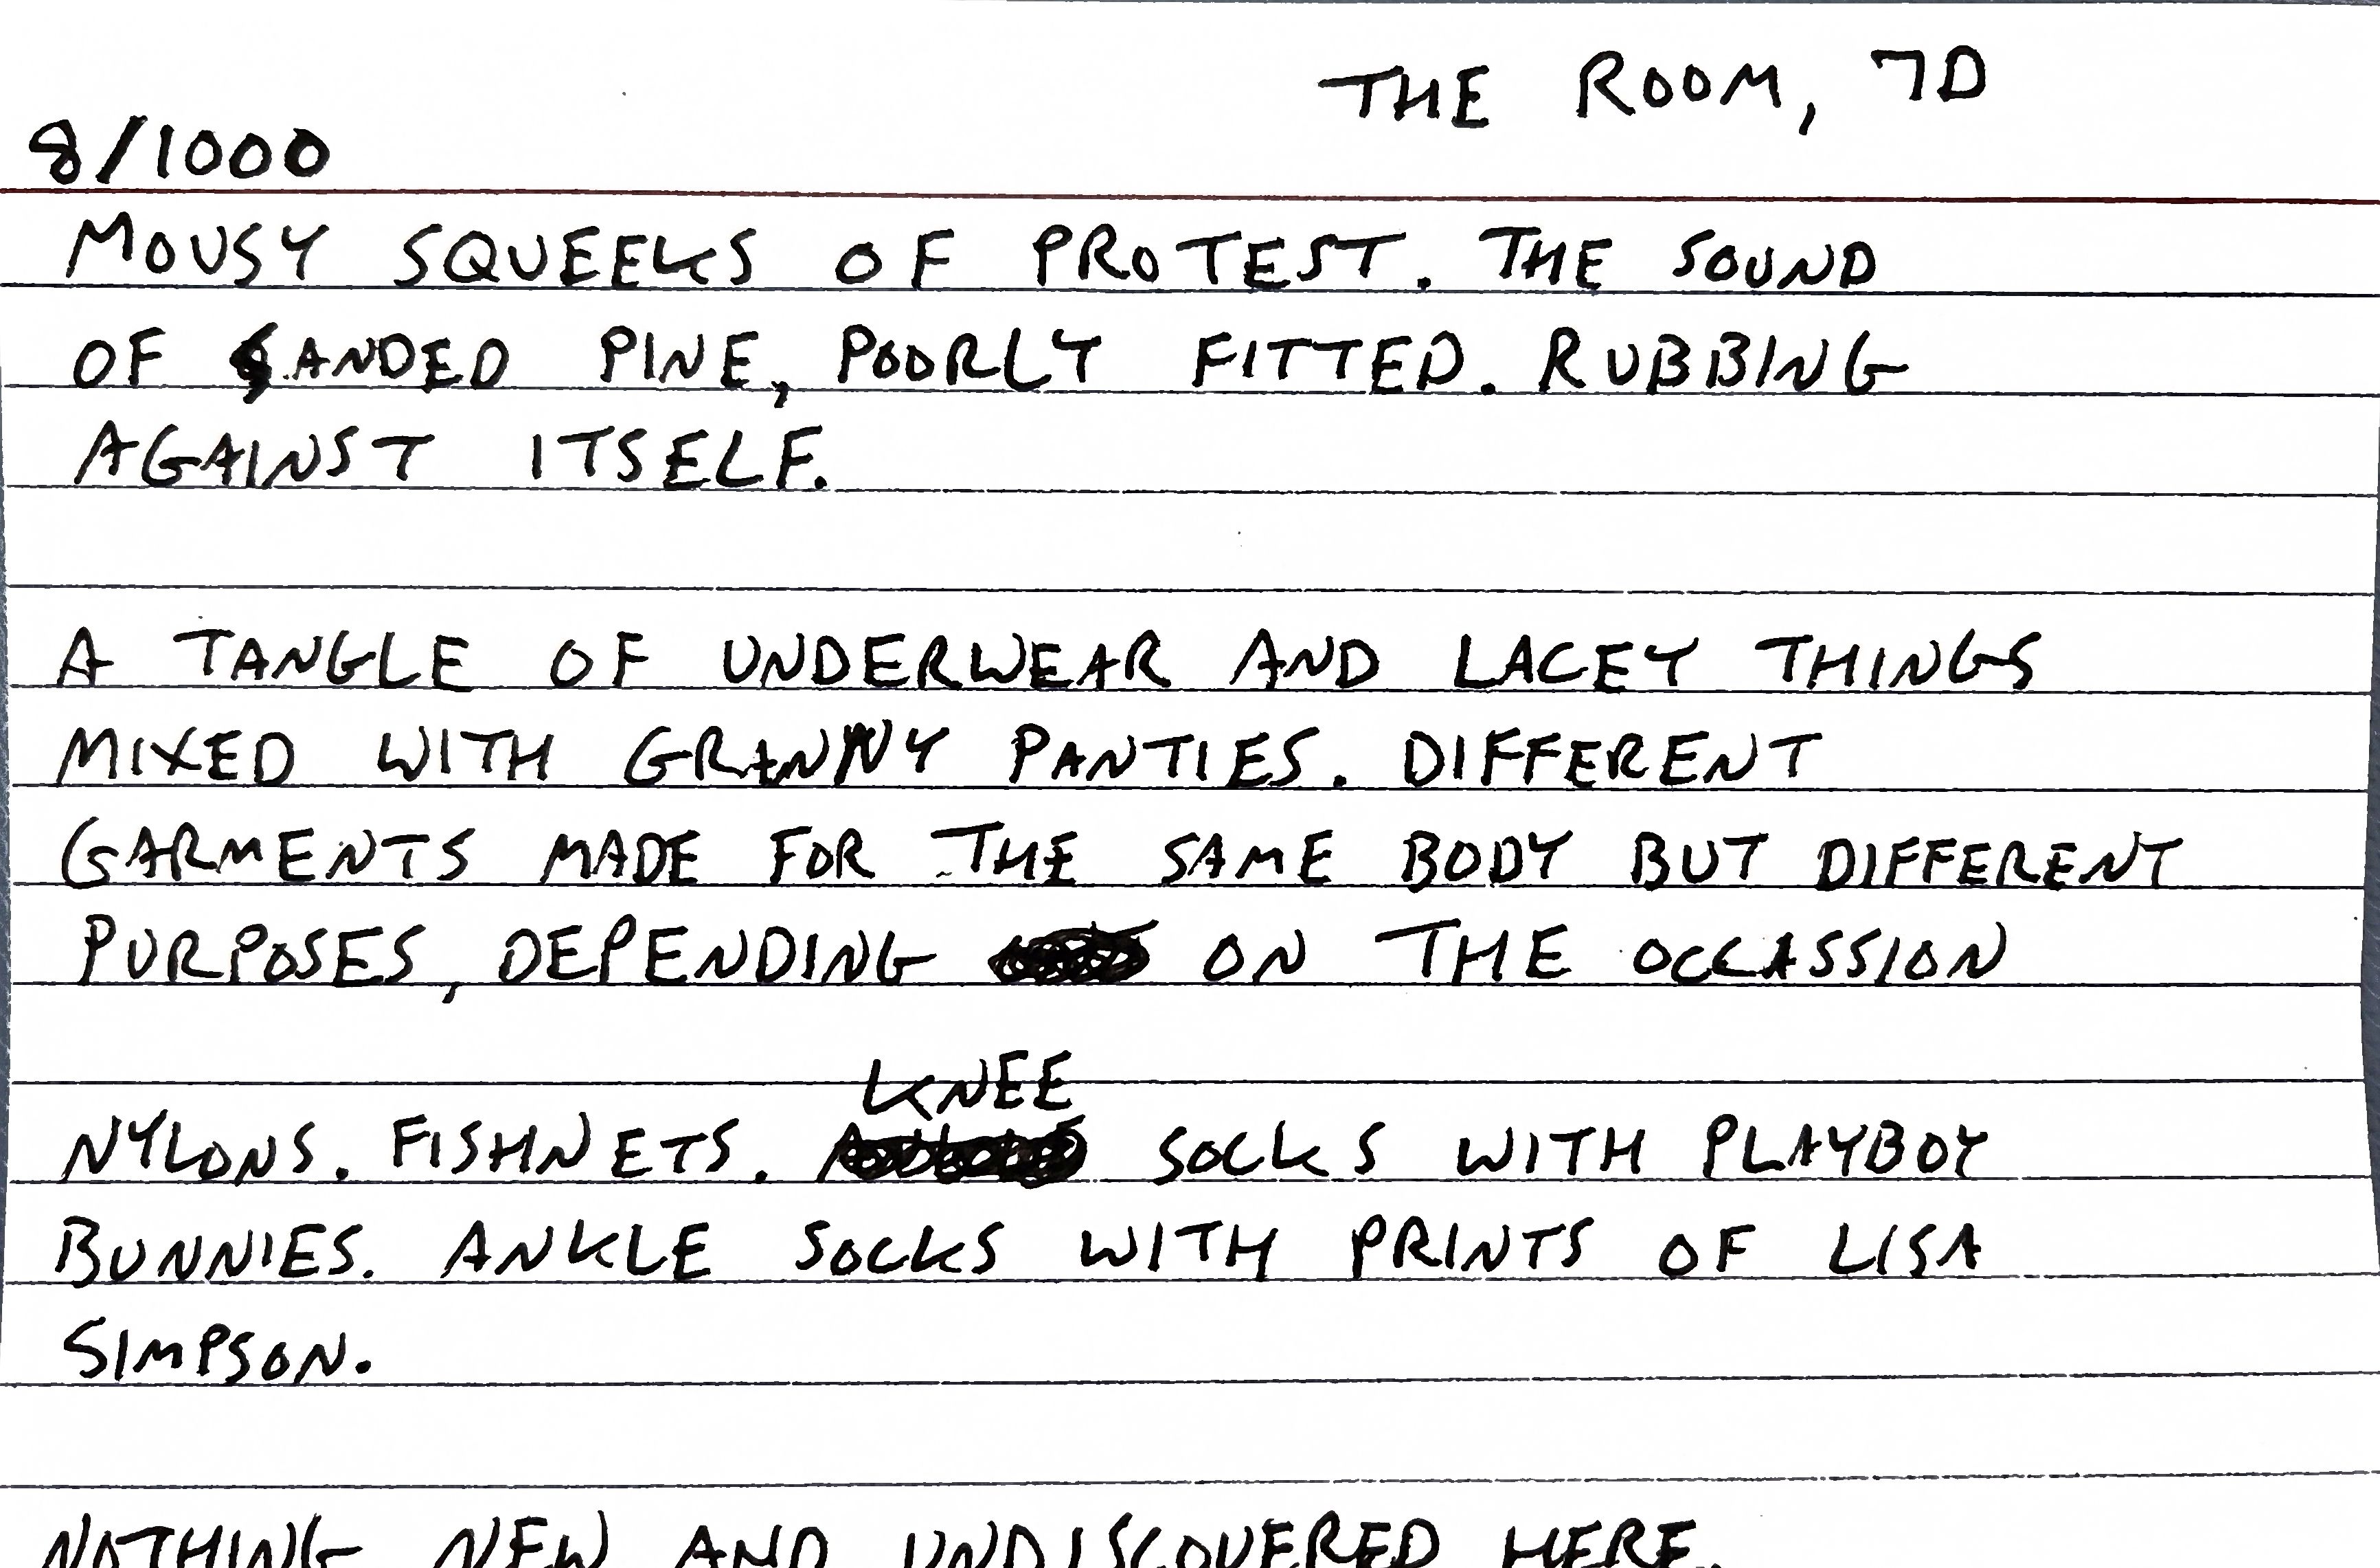 THE ROOM, 7D
8/1000
MOUSY SQUEEKS OF PROTEST. THE SOUND
OF SANDED PINE, POORLY FITTED. RUBBING
AGAINST ITSELF.
A TANGLE OF UNDERWEAR AND LACEY THINGS
MIXED WITH GRANNY PANTIES. DIFFERENT
GARMENTS MADE FOR THE SAME BODY BUT DIFFERENT
PURPOSES, DEPENDING ON THE OCCASSION
KNEE
NYLONS. FISHNETS. SOCKS WITH PLAYBOY
BUNNIES. ANKLE SOCKS WITH PRINTS OF LISA
SIMPSON.
NOTHING NEW AND UNDISCOVERED HERE.